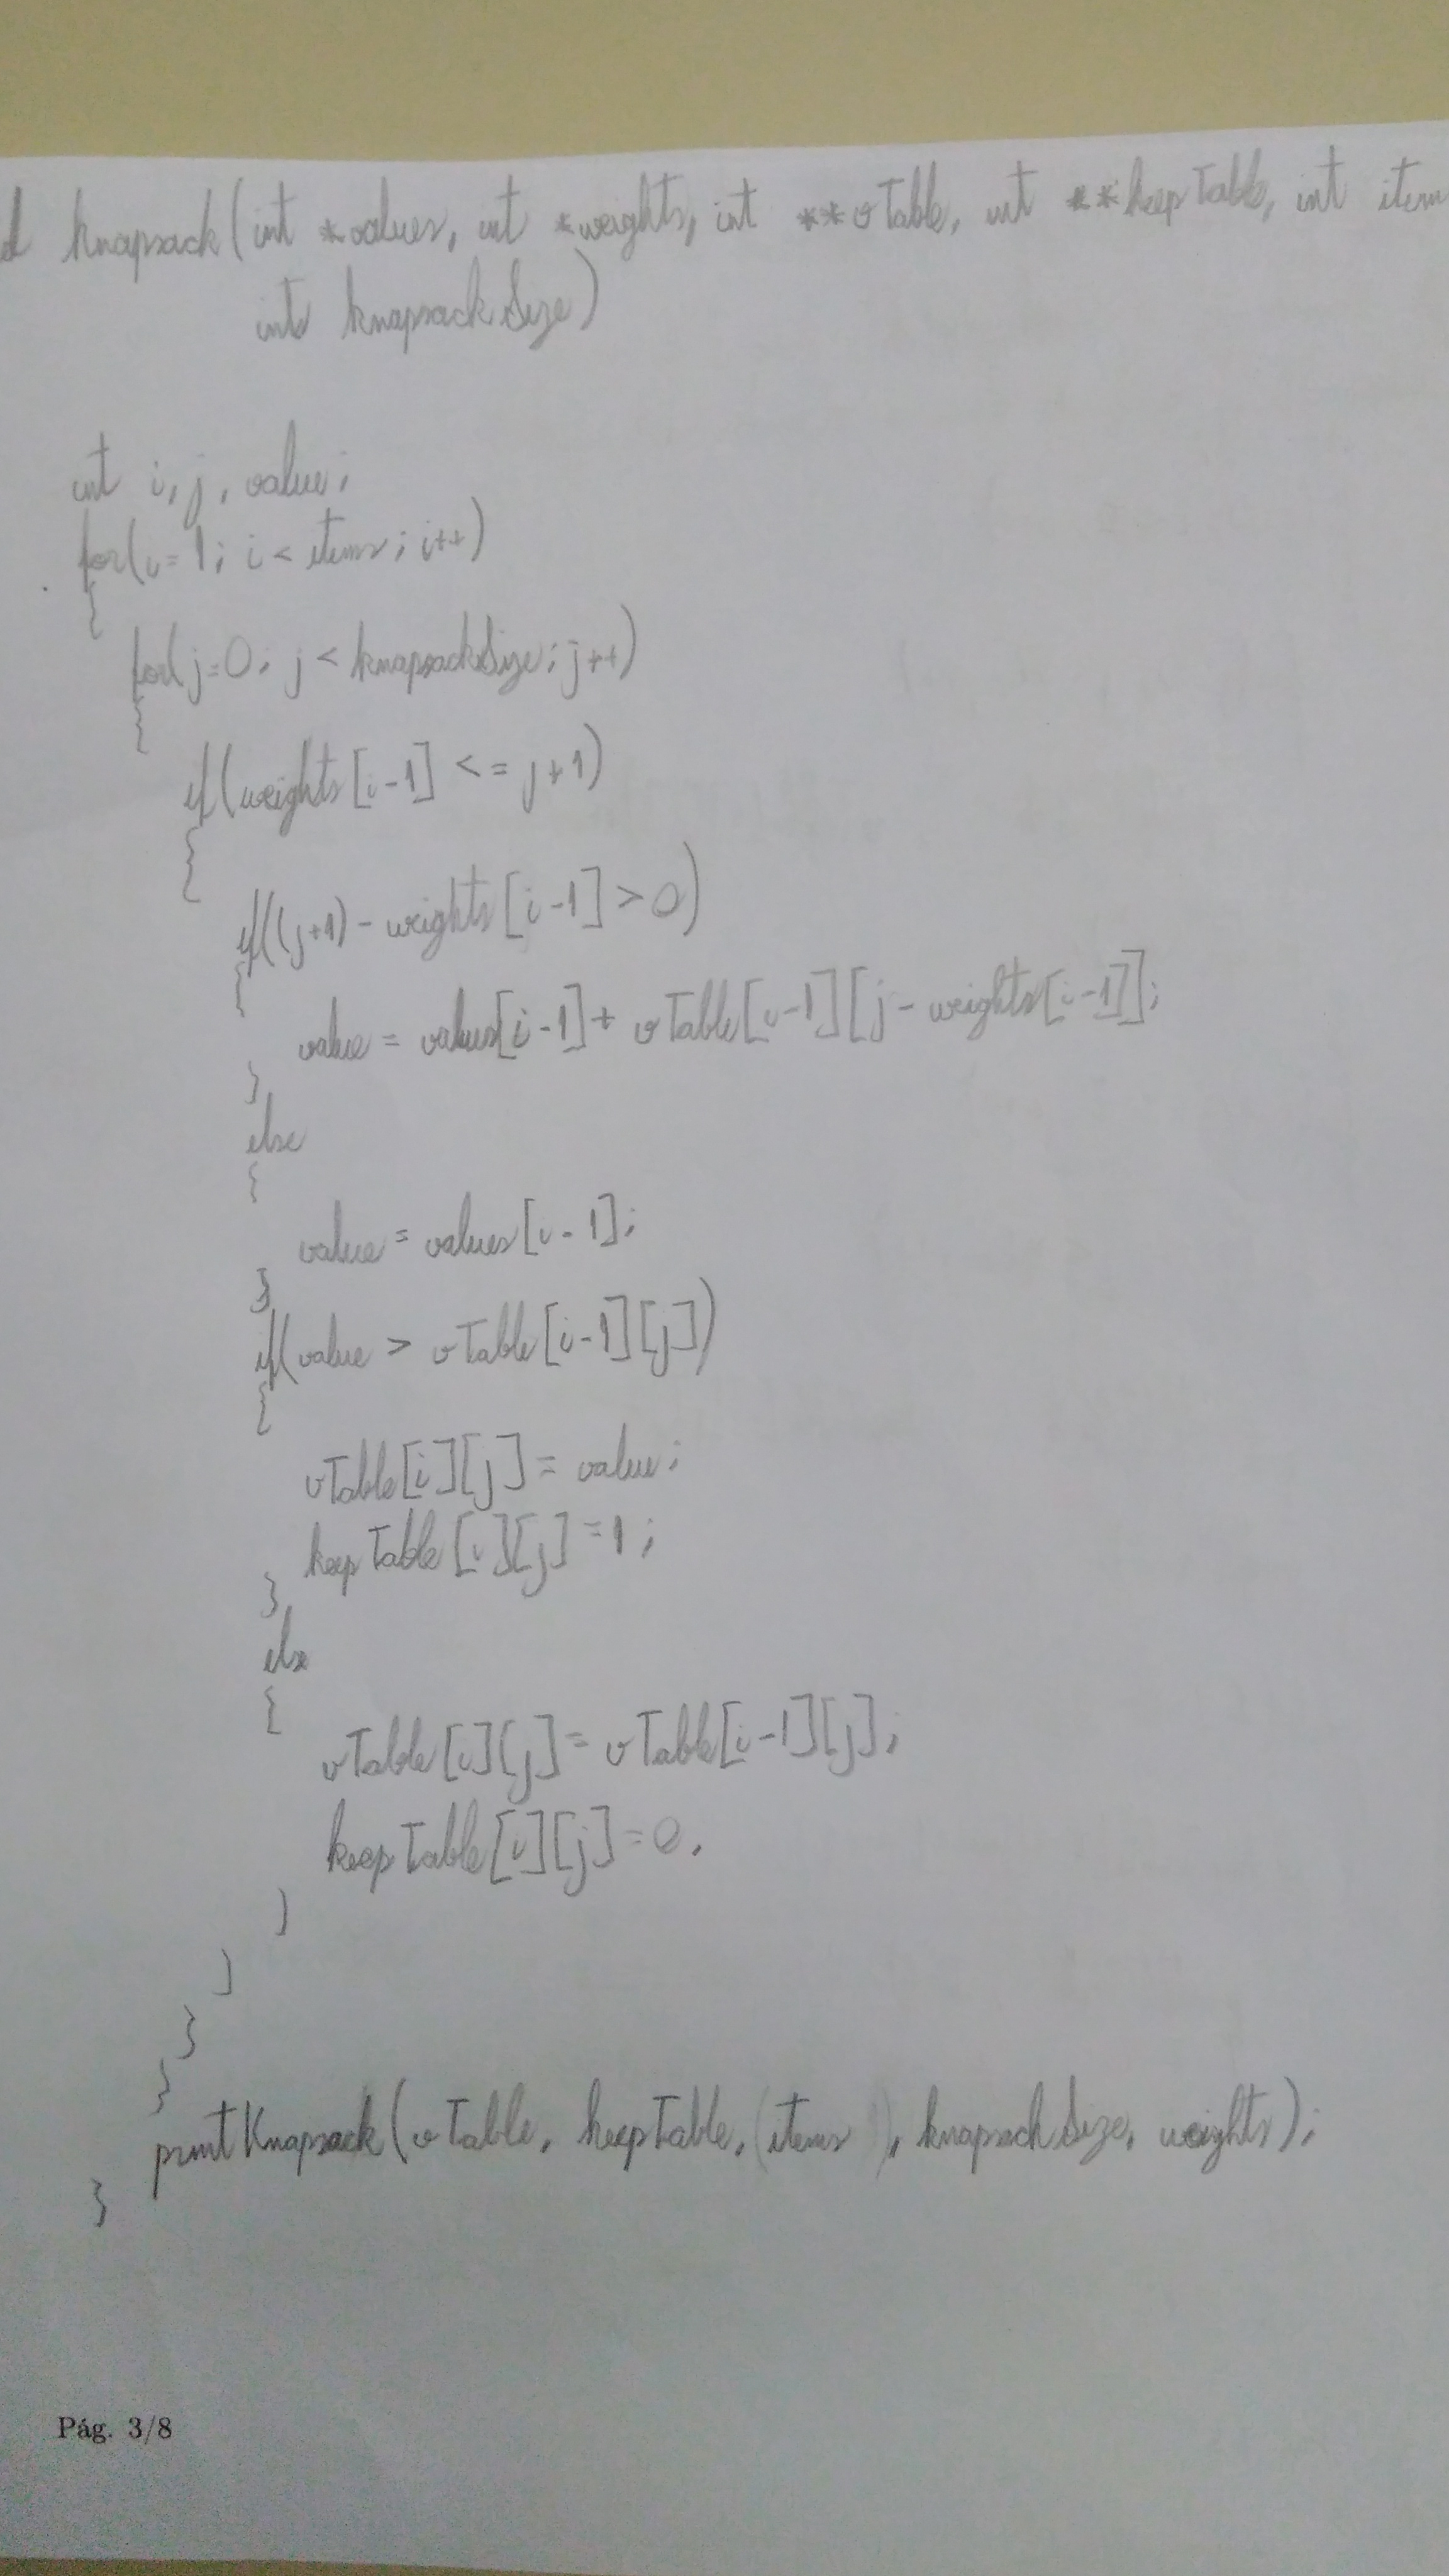 d knapsack(int *values, int *weights, int **vTable, int **keepTable, int item
int knapsackSize)
int i, j, value;
for(i=1; i < items; i++)
{
for(j=0; j < knapsackSize; j++)
{
if(weights[i-1] <= j+1)
{
if((j+1) - weights[i-1] > 0)
{
value = values[i-1] + vTable[i-1][j - weights[i-1]];
}
else
{
value = values[i-1];
}
if(value > vTable[i-1][j])
{
vTable[i][j] = value;
keepTable[i][j] = 1;
}
else
{
vTable[i][j] = vTable[i-1][j];
keepTable[i][j] = 0;
}
}
}
}
printKnapsack(vTable, keepTable, (items ), knapsackSize, weights);
}
Pág. 3/8